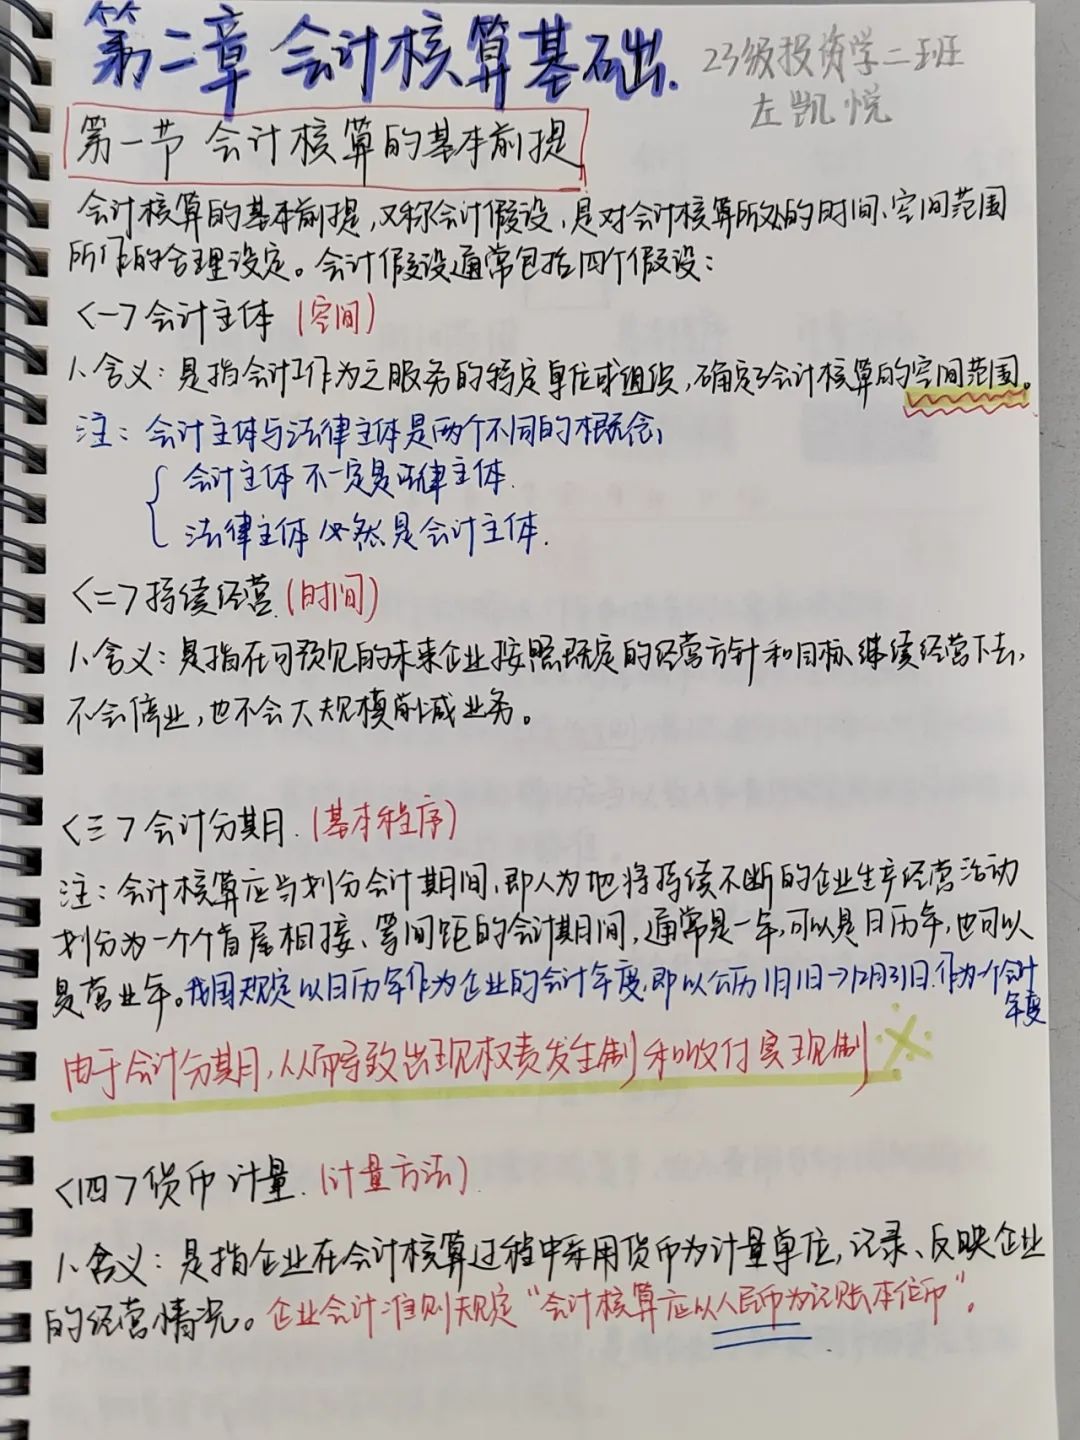 第二章 会计核算基础.
23级投资学二班
左凯悦
第一节 会计核算的基本前提
会计核算的基本前提,又称会计假设,是对会计核算所处的时间、空间范围
所作的合理设定。会计假设通常包括四个假设:
<一>会计主体 (空间)
1、含义:是指会计工作为之服务的特定单位或组织,确定了会计核算的空间范围。
注:会计主体与法律主体是两个不同的概念;
会计主体不一定是法律主体.
法律主体必然是会计主体.
<二>持续经营.(时间)
1、含义:是指在可预见的未来企业按照既定的经营方针和目标继续经营下去,
不会停业,也不会大规模削减业务。
<三>会计分期.(基本程序)
注:会计核算应当划分会计期间,即人为地将持续不断的企业生产经营活动
划分为一个个首尾相接、等间距的会计期间,通常是一年,可以是日历年,也可以
是营业年。我国规定以日历年作为企业的会计年度,即以公历1月1日→12月31日.作为一个会计
年度
由于会计分期,从而导致出现权责发生制和收付实现制
<四>货币计量.(计量方法)
1、含义:是指企业在会计核算过程中采用货币为计量单位,记录、反映企业
的经营情况。企业会计准则规定“会计核算应以人民币为记账本位币”。